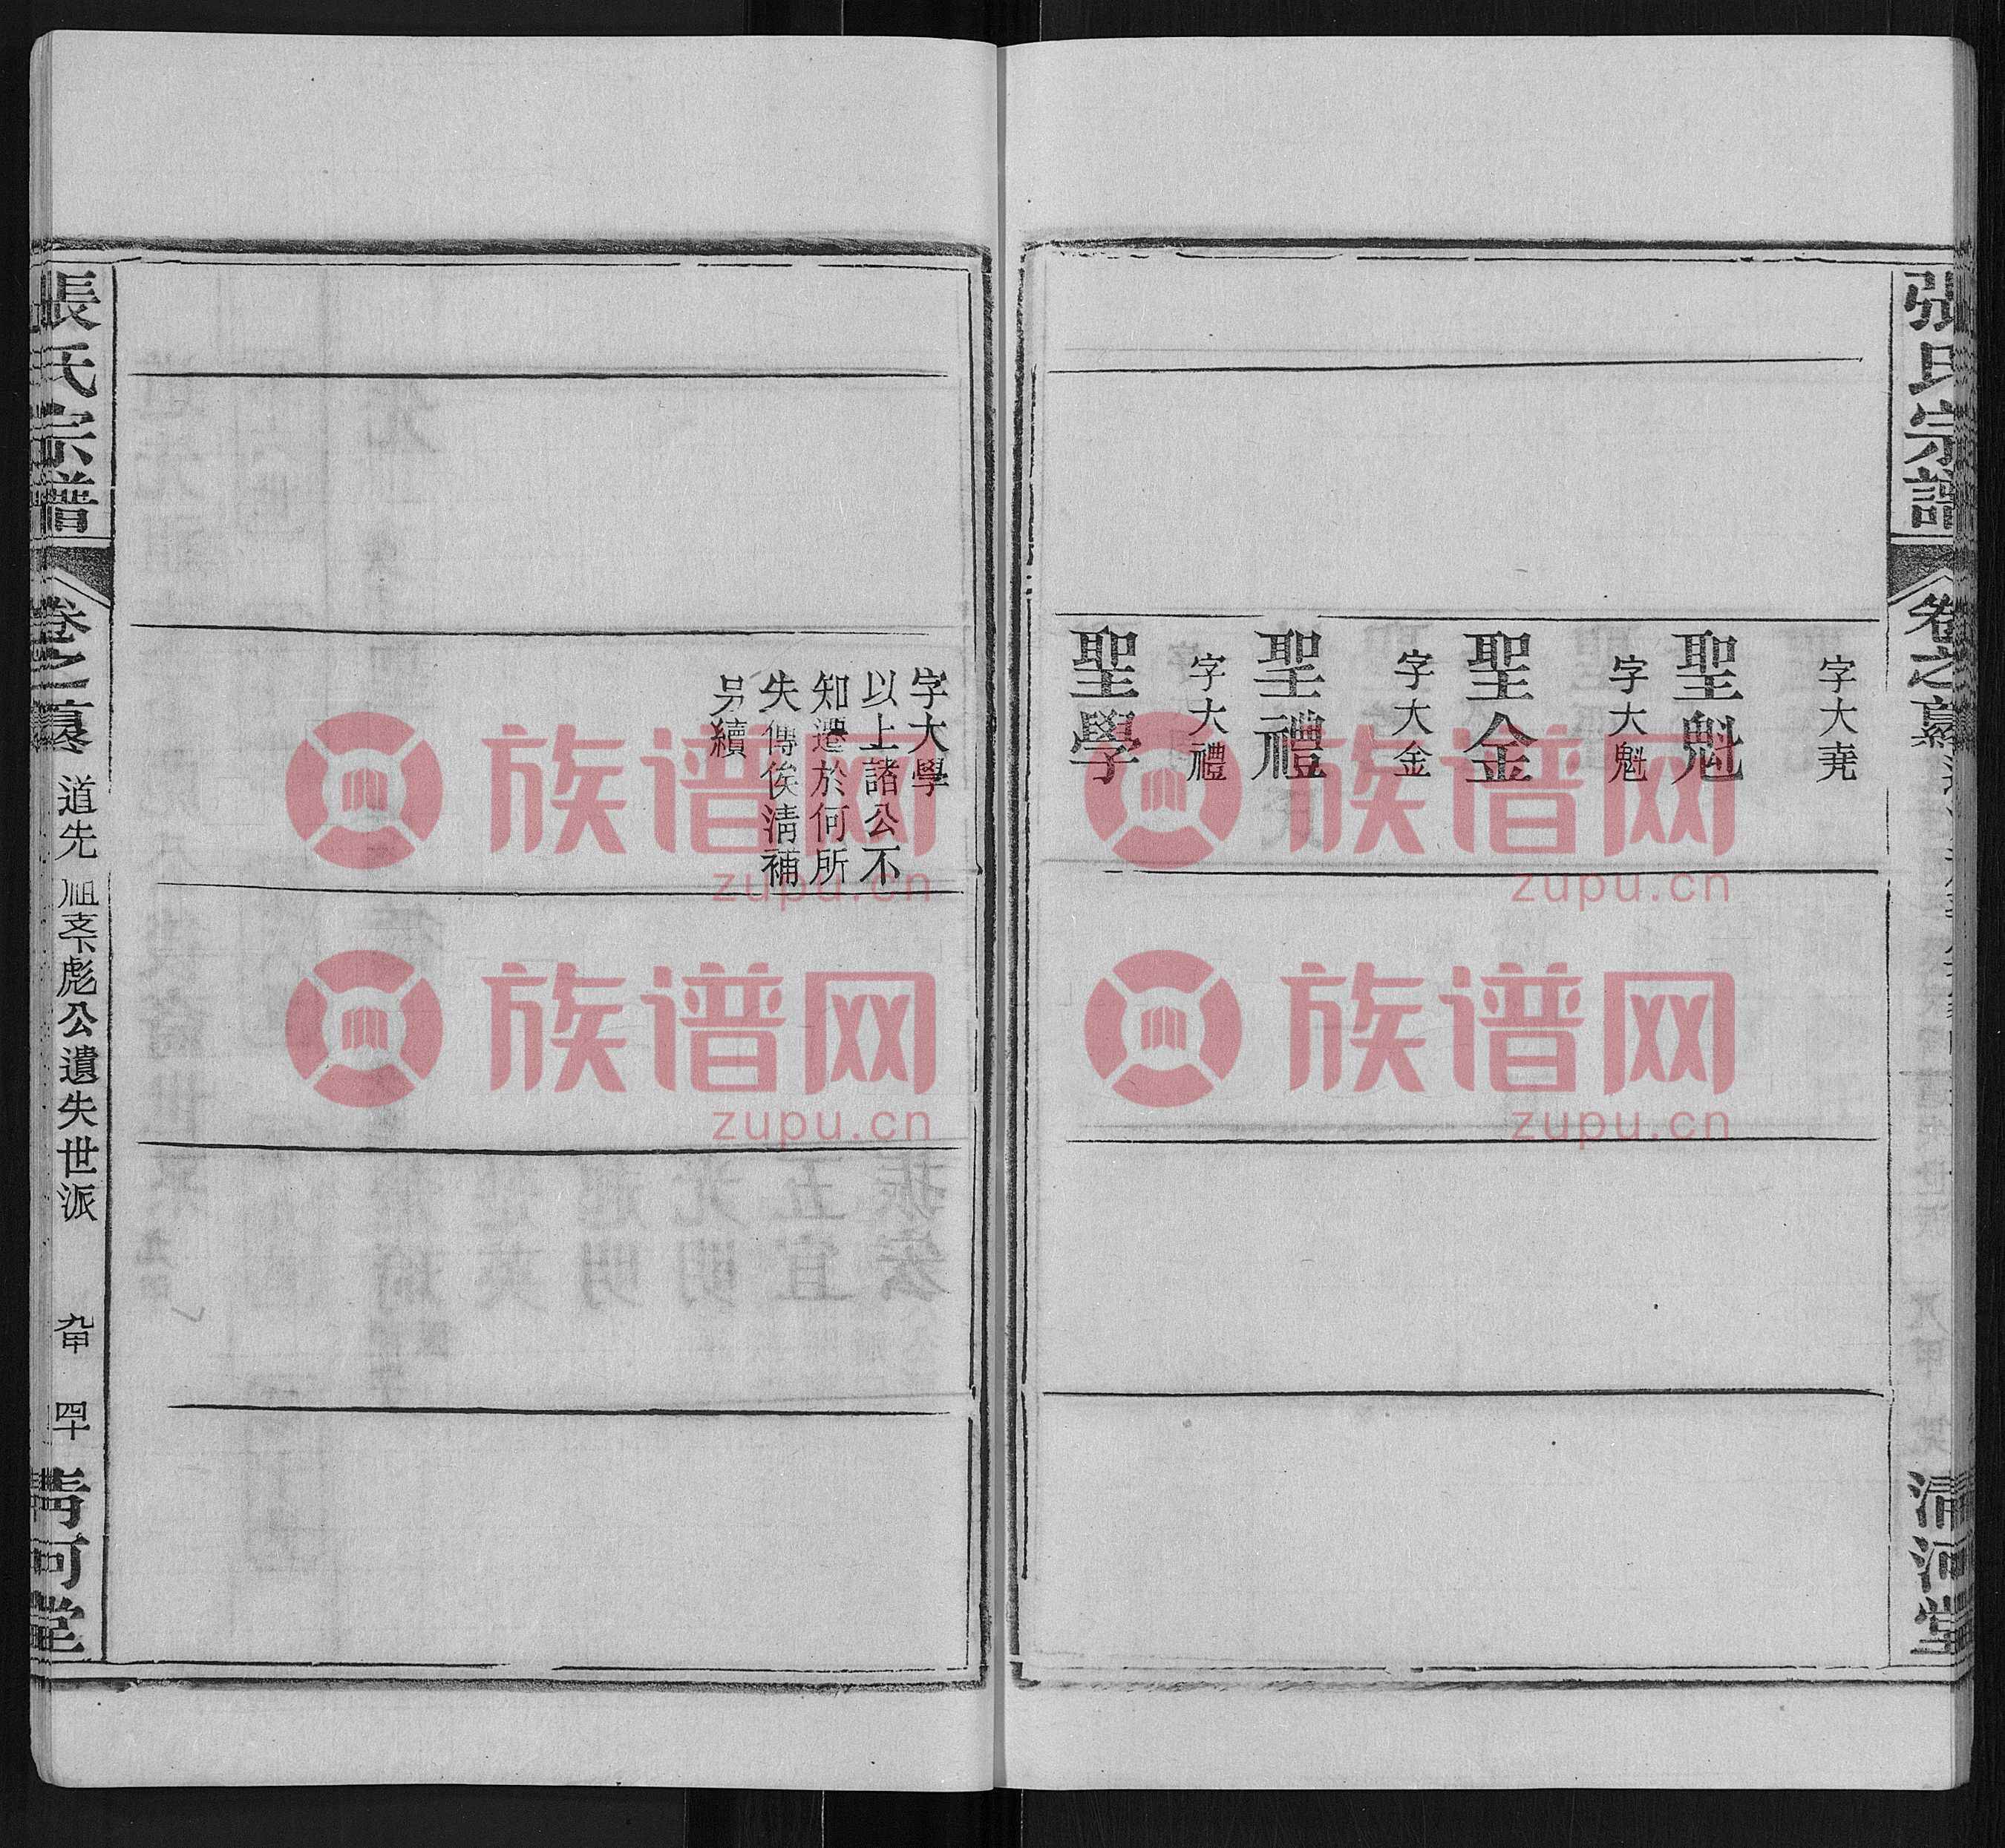 張氏宗譜
清河堂
字大堯
聖魁
字大魁
聖金
字大金
聖禮
字大禮
聖學
字大學
以上諸公不
知遷於何所
失傳俟清補
另續
張氏宗譜
道先
祖支下彪公遺失世派
九甲
四十
清河堂
族谱网
zupu.cn
族谱网
zupu.cn
族谱网
zupu.cn
族谱网
zupu.cn